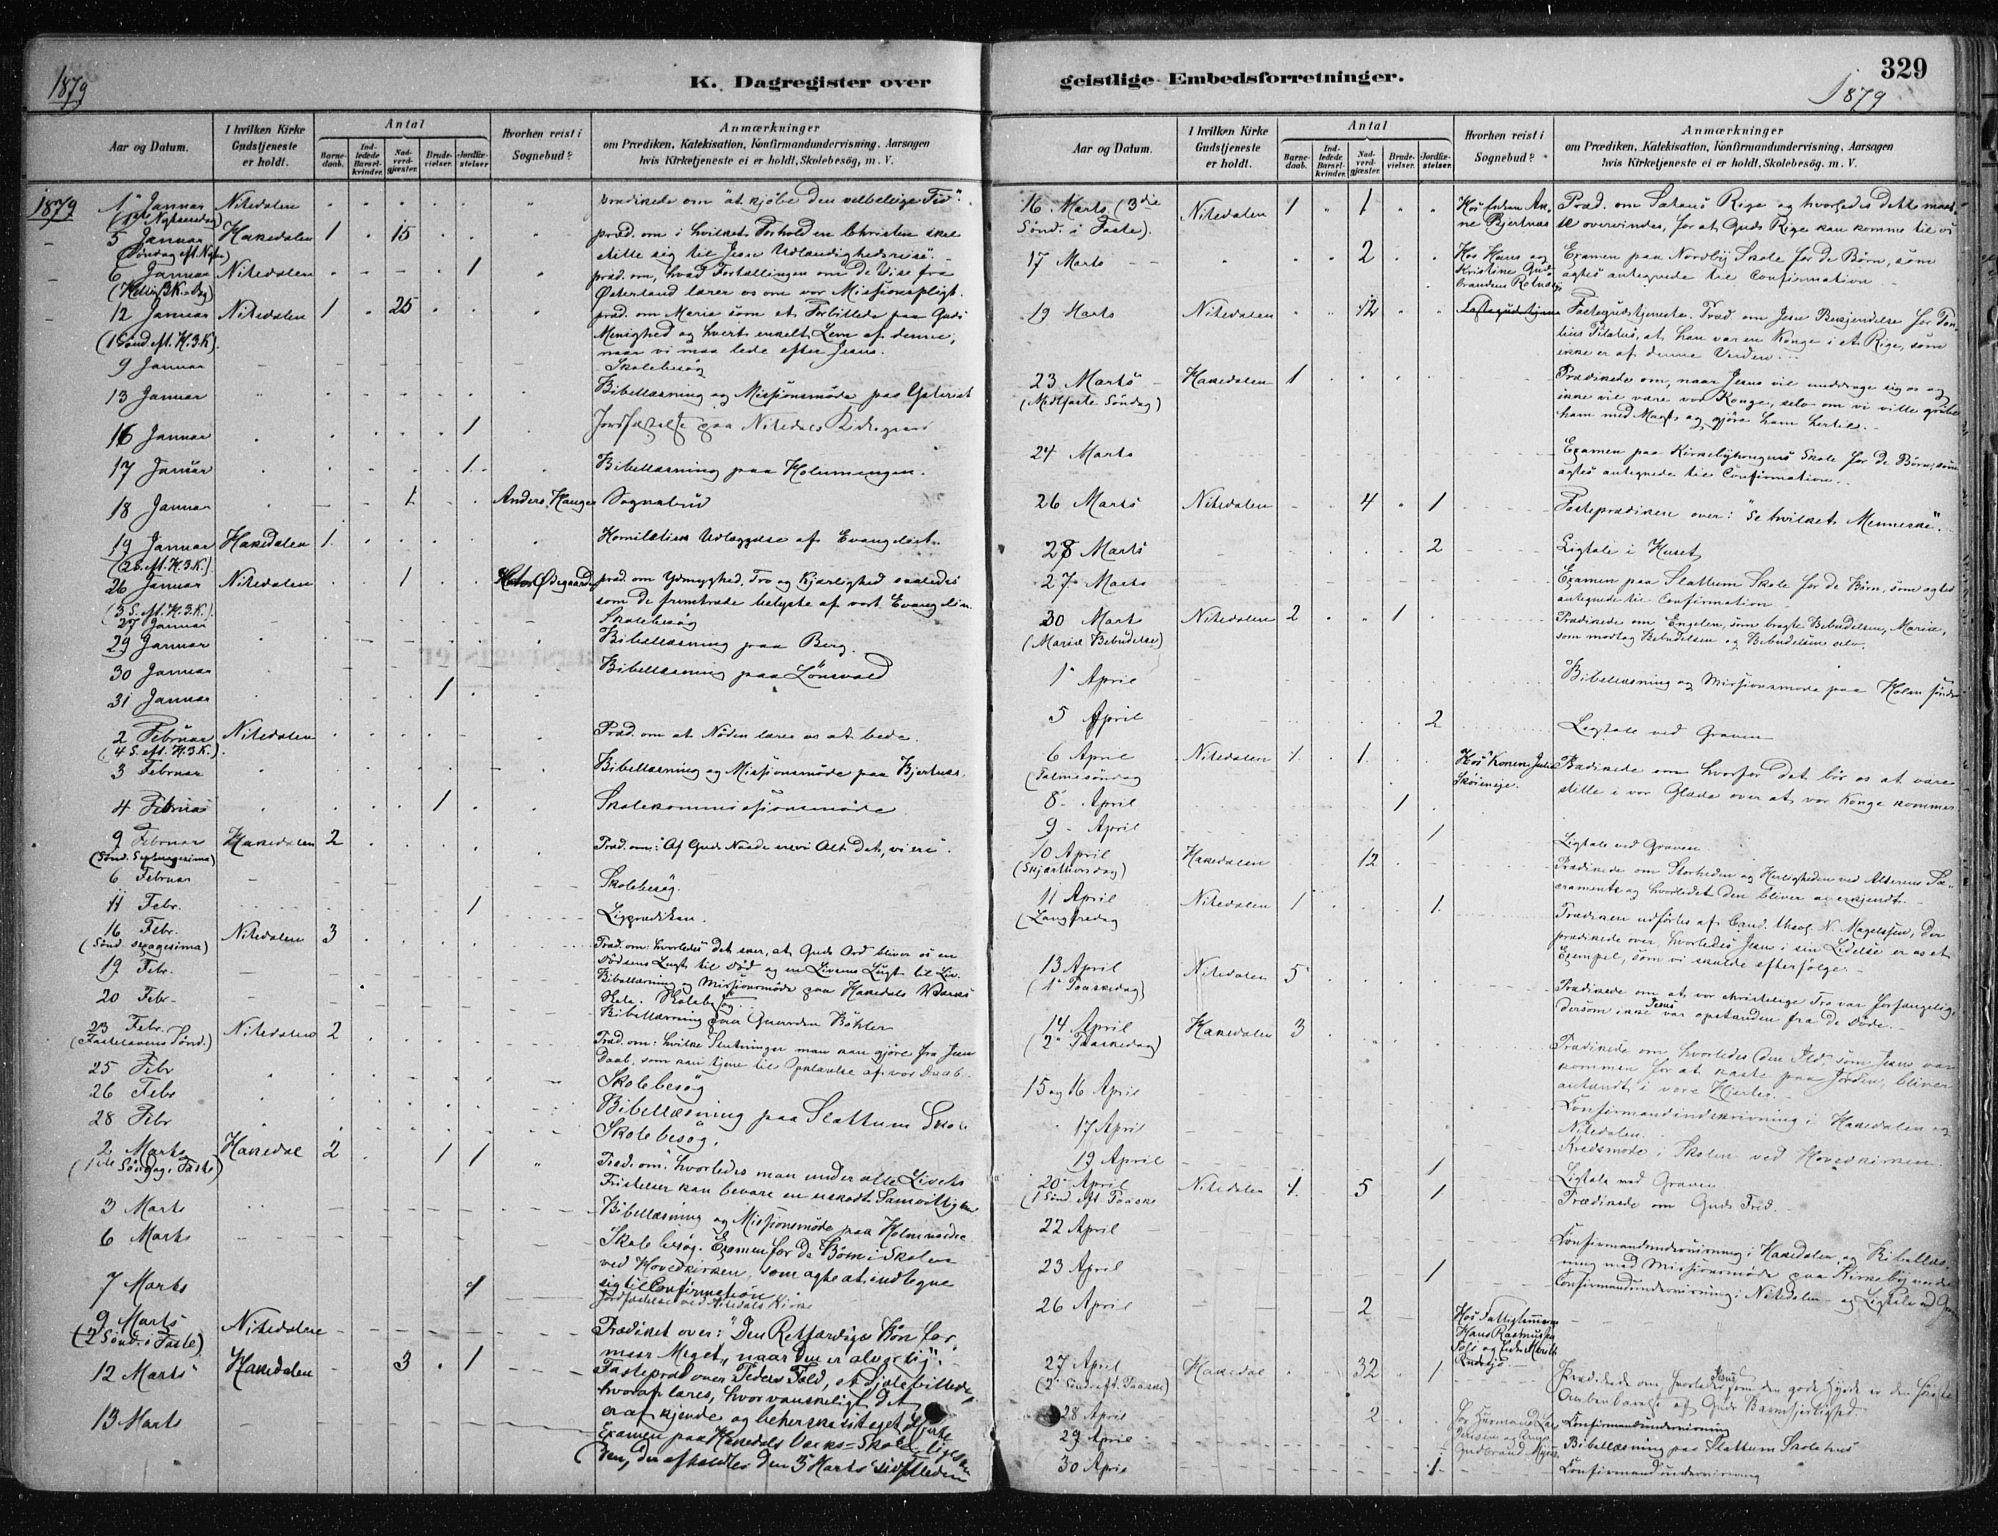 1879
K. Dagregister over
Aar og Datum.
I hvilken Kirke Gudstjeneste er holdt.
Antal
Barnedaab.
Indledede Barselkvinder.
Nadverdgjæster.
Brudevielser.
Jordfæstelser
Hvorhen reist i Sognebud?
Anmærkninger
om Prædiken, Katekisation, Konfirmandundervisning, Aarsagen
hvis Kirketjeneste ei er holdt, Skolebesøg, m. V.
1879 1 Januar Nitedalen prædikede om "at kjøbe den velbeleige Tid".
5 Januar Hakedalen 1 15 præd. om i hvilket Forhold en Christen skal
stille sig til Jesu Udlændighedsreise.
6 Januar Nitedalen 1 præd. om, hvad Fortællingen om de Vise fra
(Hellig 3 K. Dag) Østerland lærer os om vor Missionspligt.
12 Januar Nitedalen 1 25 præd. om Maria som et Forbillede paa Guds
(1 Sønd. eft. H.3.K.) Menighed og hvert enkelt Lem af denne,
naar vi maa lede efter Jesus.
9 Januar Skolebesøg
13 Januar Bibellæsning og Missionsmøde paa
16 Januar 1 Jordfæstelse paa Nitedals Kirkegaard
17 Januar 1 Bibellæsning paa Holumengen.
18 Januar 1 Anders Haugen Sognebud
19 Januar Hakedalen 1 Homiletisk Udlæggelse af Evangeliet.
(2 S. eft. H.3.K.)
26 Januar Nitedalen 1 Ødegaarden præd. om Ydmyghed, Tro og Kjærlighed saaledes
(3 S. eft. H.3.K.) som de fremtræde belyste af vort Evangelium
27 Januar Skolebesøg
29 Januar Bibellæsning paa Berg.
30 Januar Bibellæsning paa Lönsvold
31 Januar 1
2 Februar Nitedalen Præd. om at Nöden lærer os at bede.
(4 S. eft. H.3.K.)
3 Februar Bibellæsning og Missionsmøde paa Bjertnæs.
4 Februar 1 Skolekommissionsmøde.
9 Februar Hakedalen 2 Præd. om: "Af Guds Naade ere vi Alt det, vi ere".
(Sønd. Septuagesima)
6 Februar Skolebesøg.
11 Febr. 1 Ligprædiken.
16 Febr. Nitedalen 3 Præd. om: hvorledes det sker, at Guds Ord bliver os en
(Sønd. sexagesima) Dödsens Lugt til Död og en Livsens Lugt til Liv.
19 Febr. Bibellæsning og Missionsmøde paa Hakedals Værks
20 Febr. Skole. Skolebesøg.
Bibellæsning paa Gaarden Böhler
23 Febr. Nitedalen 2 Præd. om: hvilke Slutninger man kan gjøre fra Jesu
(Fastelavens Sønd.) Daab, som kan tjene til Oplevelse af vor Daab.
25 Febr Skolebesøg
26 Febr. Bibellæsning paa Slattum Skole
28 Febr Skolebesøg.
2 Marts Hakedal 2 1 1 Præd. om: hvorledes man under alle Livets
(1ste Søndag i Faste) Fristelser kan bevare en uskadt Samvittighed
3 Marts Bibellæsning og Missionsmøde paa Holm nordre
6 Marts Skolebesøg. Examen for de Børn i Skolen
ved Hovedkirken, som agte at indtegne
7 Marts 1 sig til Confirmation.
Jordfæstelse ved Nitedals Kirke
9 Marts Nitedalen Prædiket over: "Den Retfærdiges Bøn formaar
(2 Sønd. i Faste) Meget, naar den er alvorlig".
12 Marts Hakedalen 3 1 Fastepræd over Peders Fald, et Sjælebillede,
hvoraf læres, hvor vanskeligt det
13 Marts er at kjende og beherske sit eget Hjerte
Examen paa Hakedals Værks-Skole ligesaa
den, der afholdtes den 5 Marts sidstleden
geistlige Embedsforretninger.
329
1879
Aar og Datum.
I hvilken Kirke Gudstjeneste er holdt.
Antal
Barnedaab.
Indledede Barselkvinder.
Nadverdgjæster.
Brudevielser.
Jordfæstelser.
Hvorhen reist i Sognebud?
Anmærkninger
om Prædiken, Katekisation, Konfirmandundervisning, Aarsagen
hvis Kirketjeneste ei er holdt, Skolebesøg, m. V.
16 Marts (3die Sønd. i Faste). Nitedalen 1 1 Hos Enken Anne Bjertnæs Præd. om Satans Rige og hvorledes dette maatte
overvindes, for at Guds Rige kan komme til os
17 Marts 2 Hos Hans og Kristine Gudbrandsen Examen paa Nordby Skole for de Børn, som
agtes antegnede til Confirmation
19 Marts Nitedalen 12 Fastegudstjeneste. Præd om Jesu Bekjendelse for Pontius
Pilatus, at han var en Konge i et Rige, som
ikke er af denne Verden.
23 Marts Hakedalen 1 Prædikede om, naar Jesus vil unddrage sig os og
(Midtfaste Søndag) ikke vil være vor Konge, selv om vi ville gribe
ham med Magt og gjøre ham hertil.
24 Marts Examen paa Kirkebyhougens Skole for de Børn, som
agtes antegnede til Confirmation.
26 Marts Nitedalen 4 1 Fasteprædiken over: "Se hvilket Menneske".
28 Marts 2 Ligtale i Huset
27 Marts Examen paa Slattum Skole for de Børn, som agtes
antegnede til Confirmation
30 Marts Nitedalen 2 1 Prædikede om Engelen, som bragte Bebudelsen, Maria,
(Mariæ Bebudelse) som modtog Bebudelsen og Bebudelsen selv.
1 April Bibellæsning og Missionsmøde paa Holm søndre
5 April 2 Ligtale ved Graven
6 April Nitedalen 1 1 Hos Konen Julie Prædikede om hvorfor det bør os at være
(Palmesöndag stille i vor Glæde over at vor Konge kommer
8 April 1
9 April 1 Ligtale ved Graven
10 April Hakedalen 12 Prædikede om Storheden og Herligheden ved Alterens Sacramente
(Skjærthorsdag) og hvorledes den bliver os erkjendt.
11 April Nitedalen 1 1 Prædiken udførtes af Cand. theol. N. Magelssen, der
(Langfredag prædikede over, hvorledes Jesus i sin Lidelse er os et
Exempel, som vi skulde efterfølge.
13 April Nitedalen 5 Prædikede om at vor christelige Tro var forfængelig,
(1 Paaskedag) dersom ikke Jesus var opstanden fra de døde.
14 April Hakedalen 3 Prædikede om hvorledes den Ild, som Jesus var
(2 Paaskedag) kommen for at kaste paa Jorden, bliver
antændt i vore Hjerter.
15 og 16 April Confirmandindskrivning i Hakedalen og
Nitedalen.
17 April Kredsmøde i Skolen ved Hovedkirken.
19 April 1 Ligtale ved Graven
20 April Nitedalen 1 5 1 Prædikede om Guds Fred.
(1 Sønd. eft. Paaske
22 April Confirmandundervisning i Hakedalen og Bibellæsning
23 April 1 med Missionsmøde paa Kirkeby nedre
Confirmandundervisning i Nitedalen og Ligtale ved
26 April 2 Hos Fattiglem Hans Rasmussen
27 April Hakedal 32 1 Prædikede om hvorledes Jesus som den gode Hyrde er den
(2 Sønd. eft. Paaske) Aabenbarelse af Guds Barmhjertighed
28 April 2 Confirmandundervisning
29 April Bibellæsning paa Slattum Skolehus
30 April 1 Confirmandundervisning